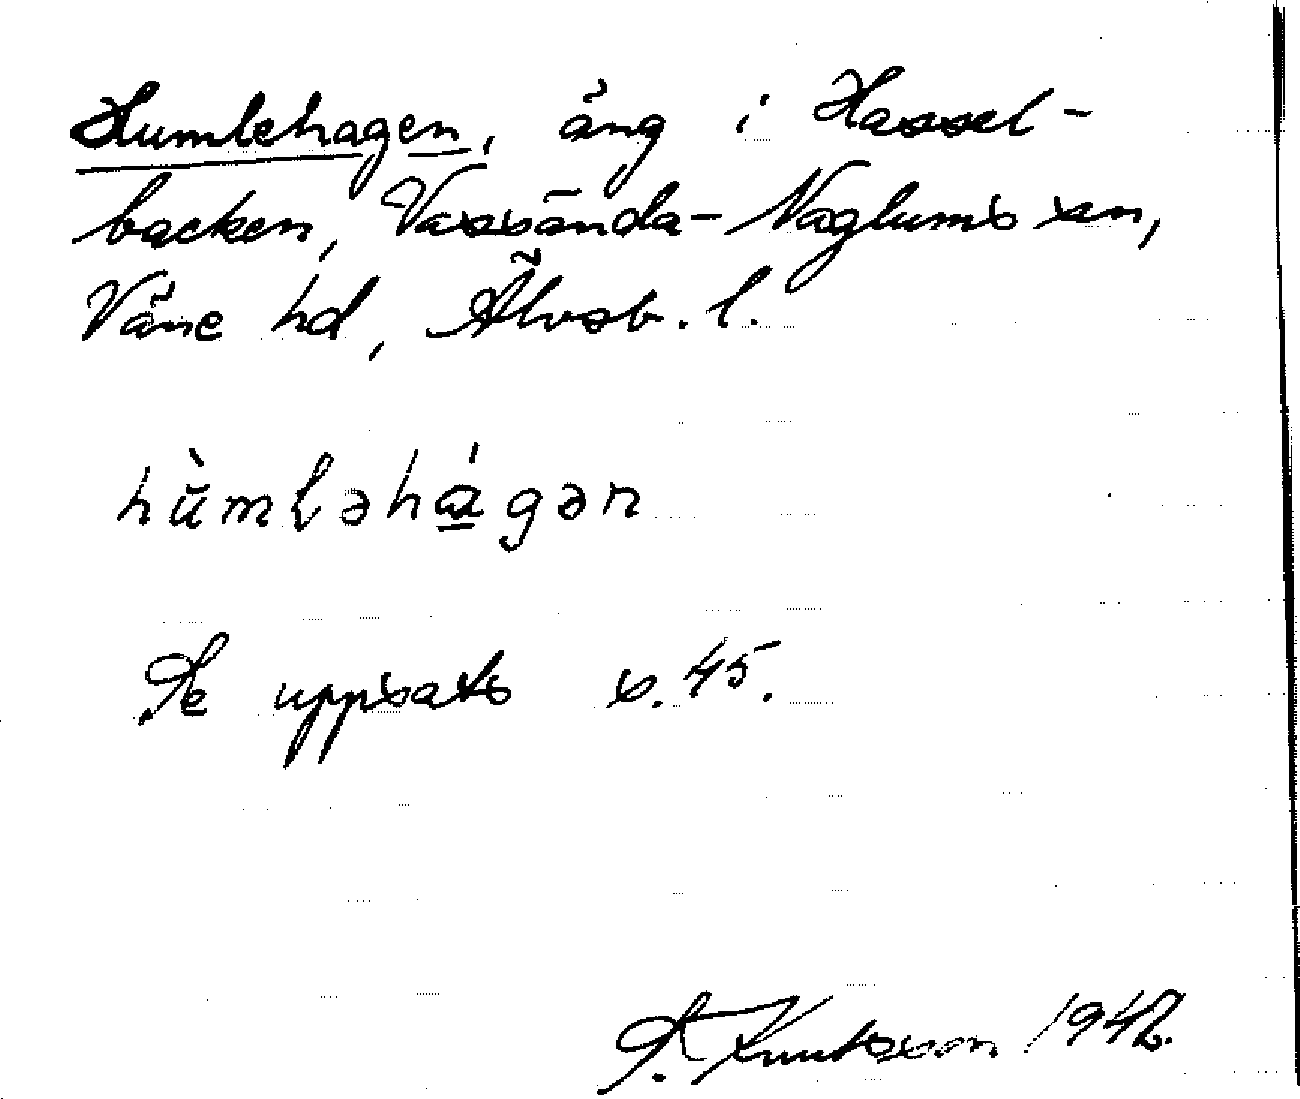 Humlehagen, äng i Hassel-
backen, Vassända-Naglums sn,
Väne hd, Älvsb. l.
hùmləhágən
Se uppsats s. 45.
S. Knutsson 1942.